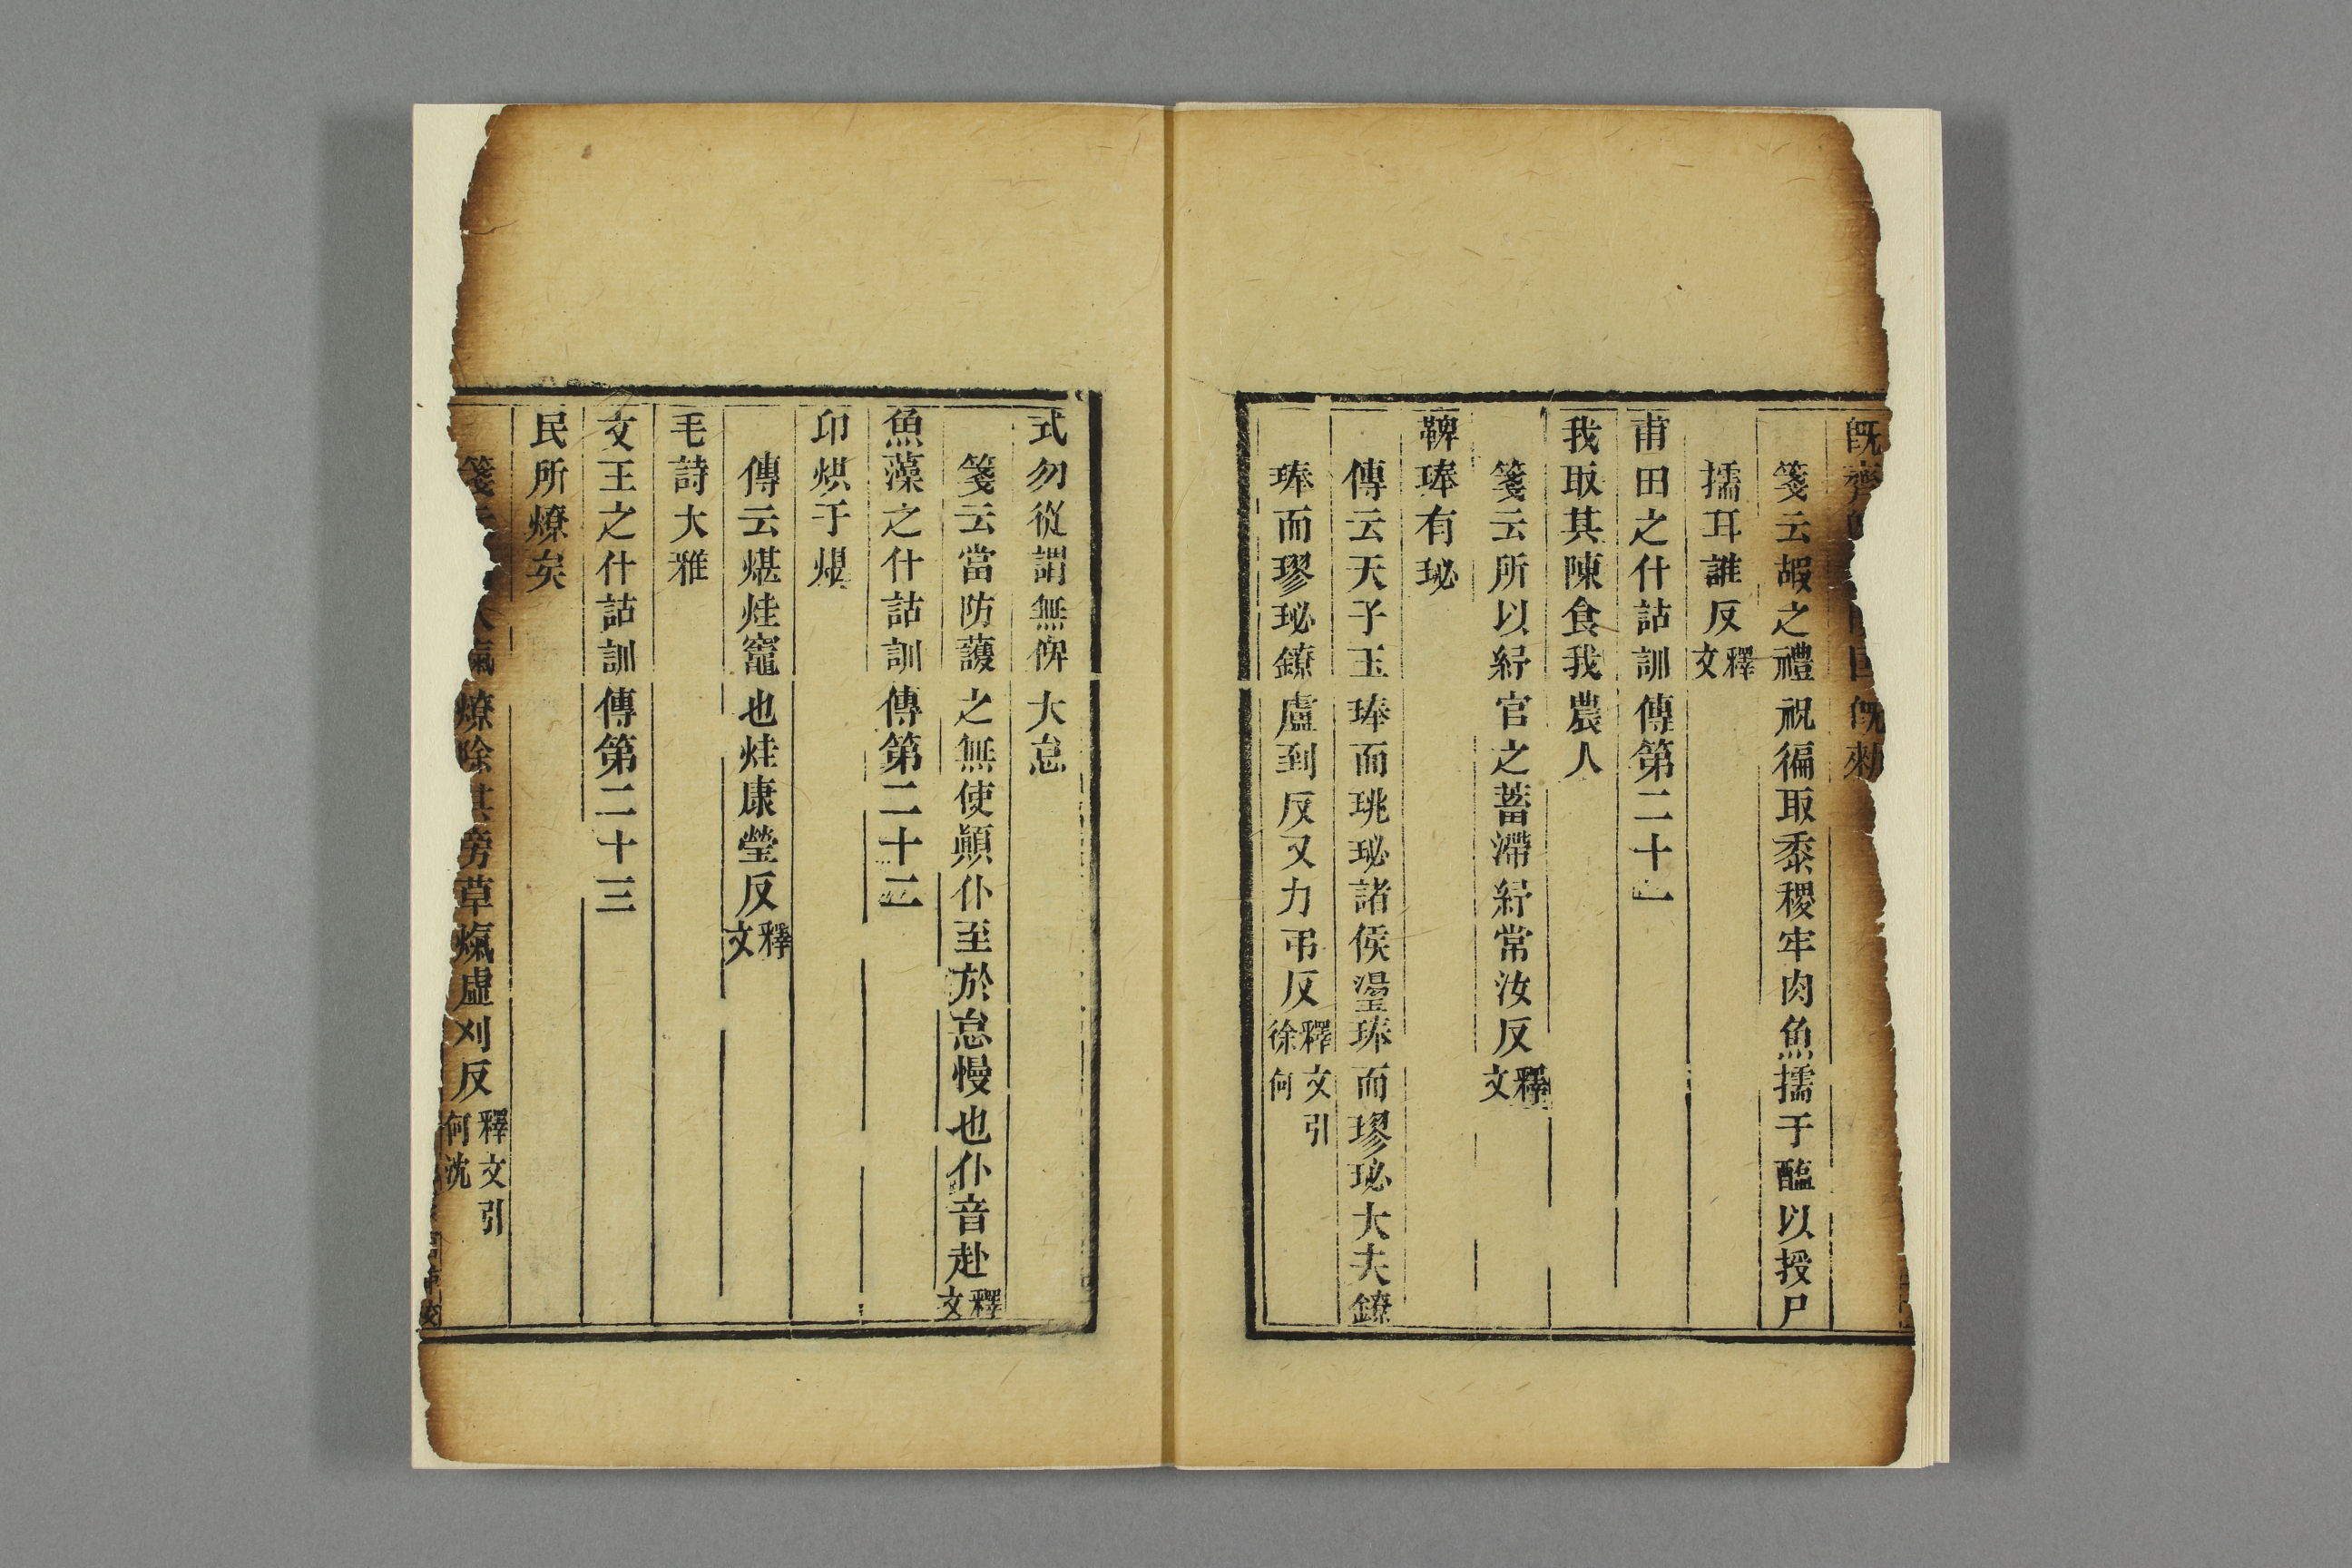 既齊
既勑
箋云嘏之禮祝徧取黍稷牢肉魚擩于醢以授尸
擩耳誰反釋文
甫田之什詁訓傳第二十一
我取其陳食我農人
箋云所以紓官之蓄滯紓常汝反釋文
鞞琫有珌
傳云天子玉琫而珧珌諸侯璗琫而璆珌大夫鐐
琫而璆珌鐐盧到反又力弔反釋文引徐何
式勿從謂無俾大怠
箋云當防護之無使顛仆至於怠慢也仆音赴釋文
魚藻之什詁訓傳第二十二
卬烘于煁
傳云煁烓竈也烓康瑩反釋文
毛詩大雅
文王之什詁訓傳第二十三
民所燎矣
箋
燎除其旁草虛刈反釋文引何沈